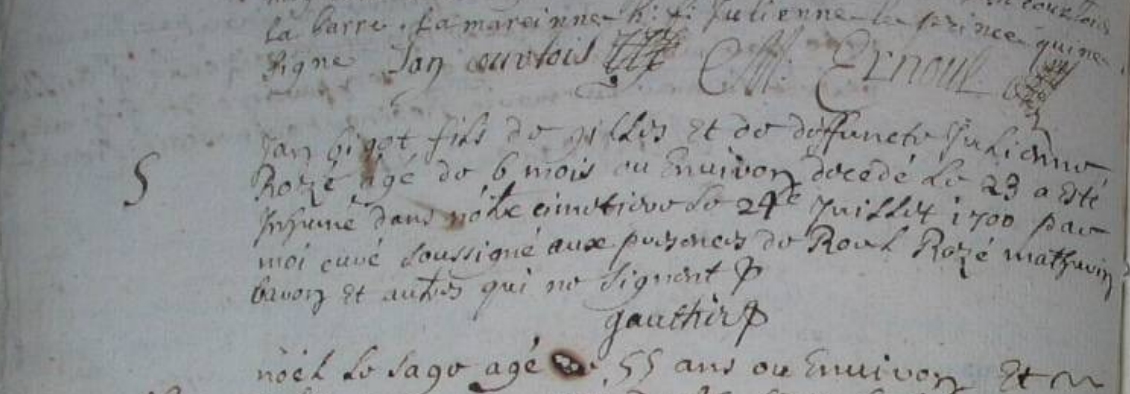 la barre. La mareinne h: f: Julienne le prince qui ne
signe Jan courtois Ernoul
S
Jan bigot fils de gilles Et de deffuncte Julienne
Rozé agé de 6 mois ou Enuiron decedé le 23 a esté
Inhumé dans nôtre cimetiere le 24e Juillet 1700 par
moi curé soussigné aux presences de Roul Rozé mathurin
baron Et autres qui ne signent
gauthier
nöel le sage agé de 55 ans ou Enuiron Et